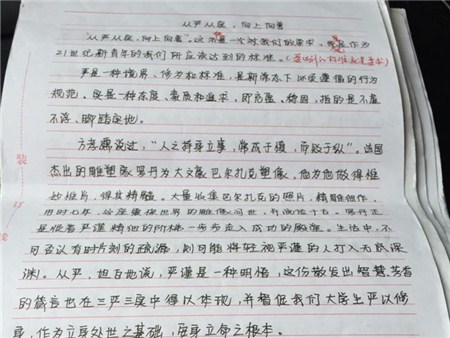 从严从实，向上向善
"从严从实，向上向善"，这不仅是一个对我们的要求，更是作为
21世纪新青年的我们所应该达到的标准。
严是一种境界、行为和标准，是新常态下必须遵循的行为
规范。实是一种态度、素质和追求，即充盈、稳固，指的是不虚
不浮、脚踏实地。
方孝孺说过，"人之持身立事，常成于慎，而败于纵"。法国
杰出的雕塑家罗丹为大文豪巴尔扎克塑像，他为他做得惟
妙惟肖，得其精髓。大量收集巴尔扎克的照片，精雕细作，
用时七年，这座震惊世界的雕像问世，
是凭着严谨精细的 一步步走入成功的殿堂。生活中，不
可否认有时片刻的疏忽，则可能将轻视严谨的人打入无底深
渊。从严，坦白地说，严谨是一种明悟，这份散发出智慧芳香
的箴言也在三严三实中得以体现，并督促我们大学生严以修
身，作为立身处世之基础，安身立命之根本。
装
订
线